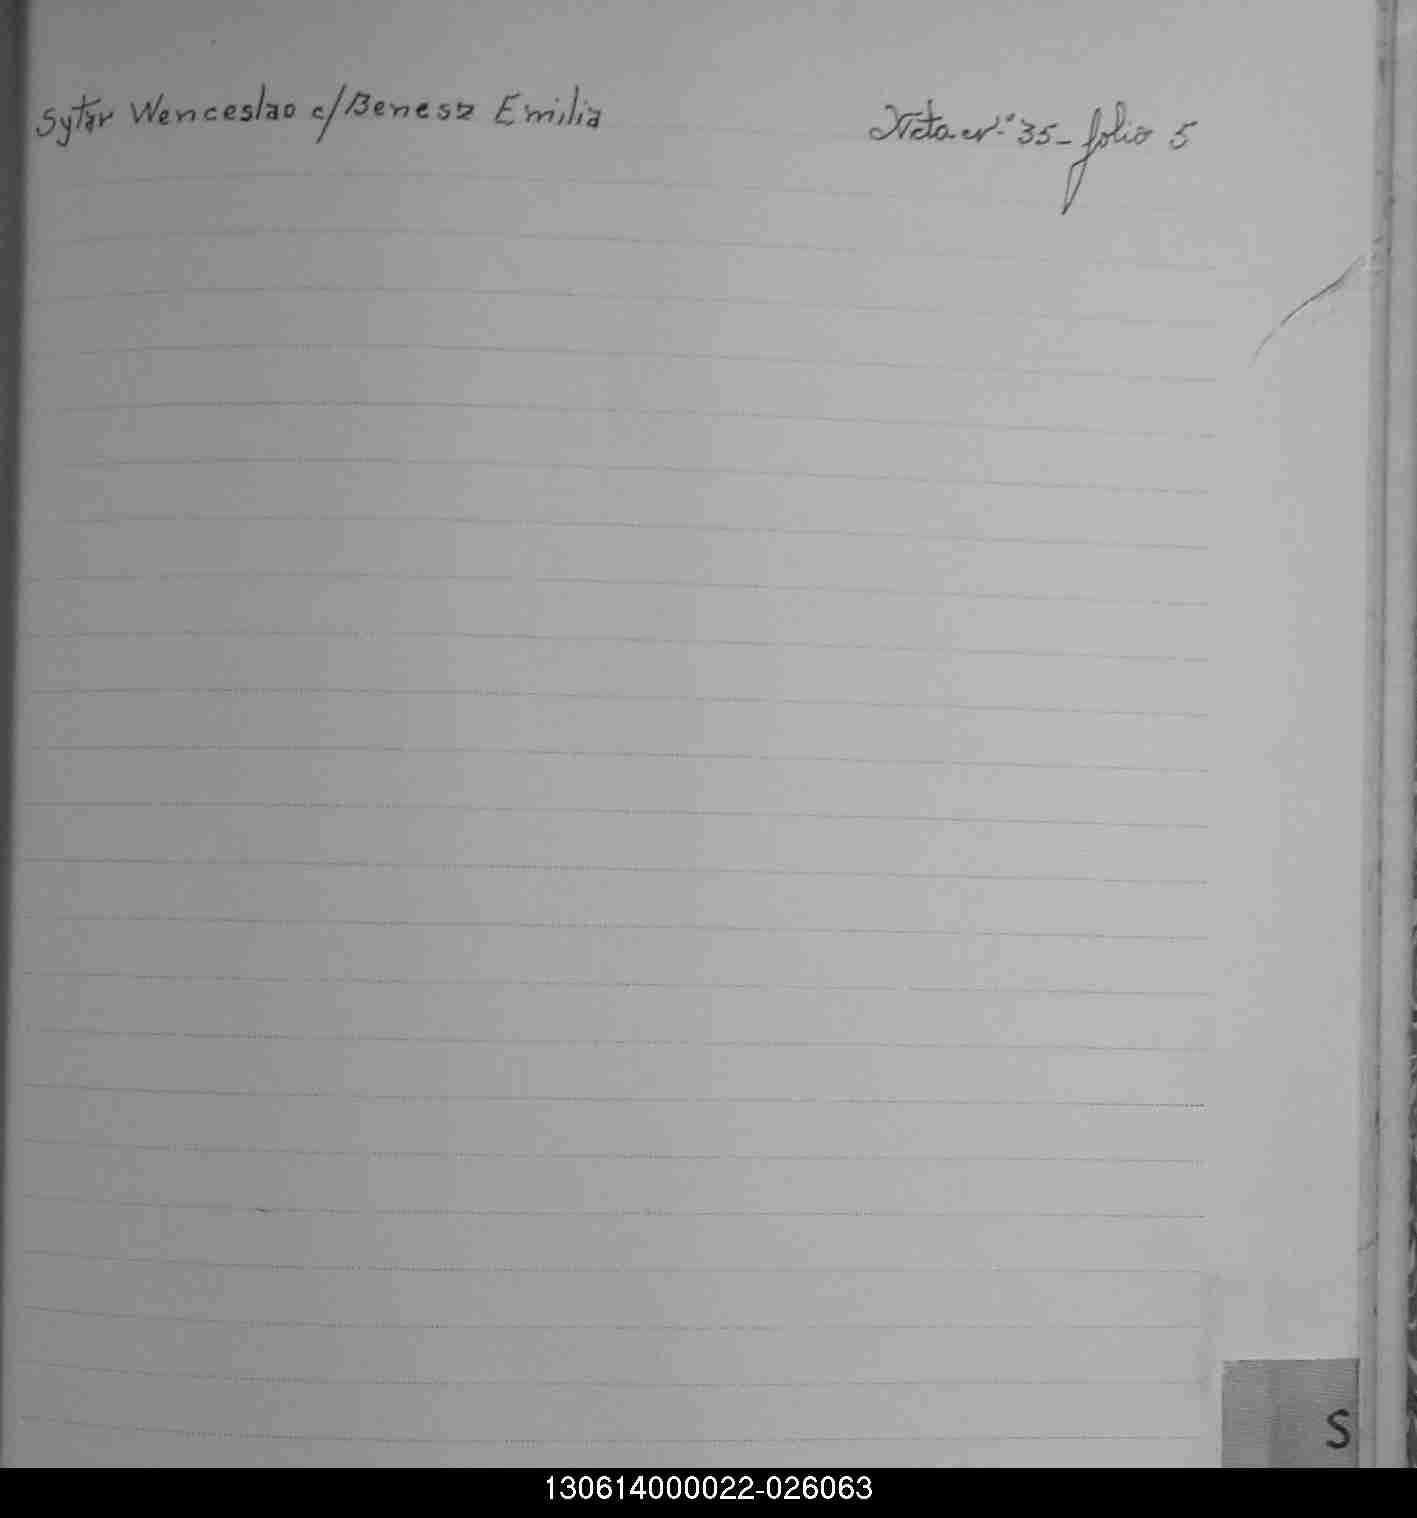 Sytar Wenceslao c/Benesz Emilia Acta nº 35- folio 5
S
130614000022-026063